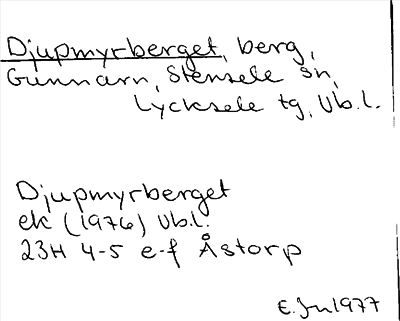 Djupmyrberget, berg,
Gunnarn, Stensele sn,
Lycksele tg, Vb.l.
Djupmyrberget
ek (1976) Vb.l.
23H 4-5 e-f Åstorp
E.Ju 1977